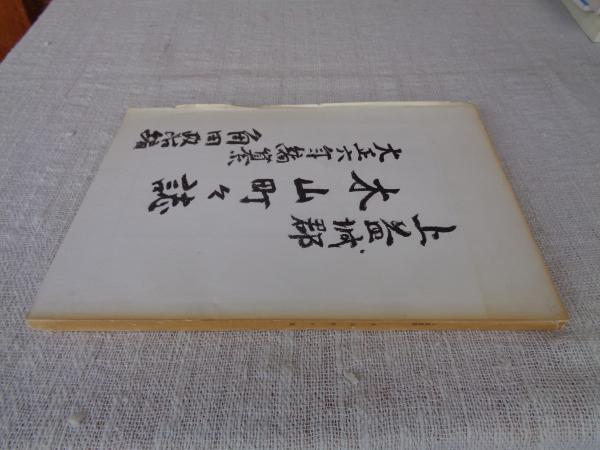 上益城郡
木山町々誌
大正六年編纂
角田政治編